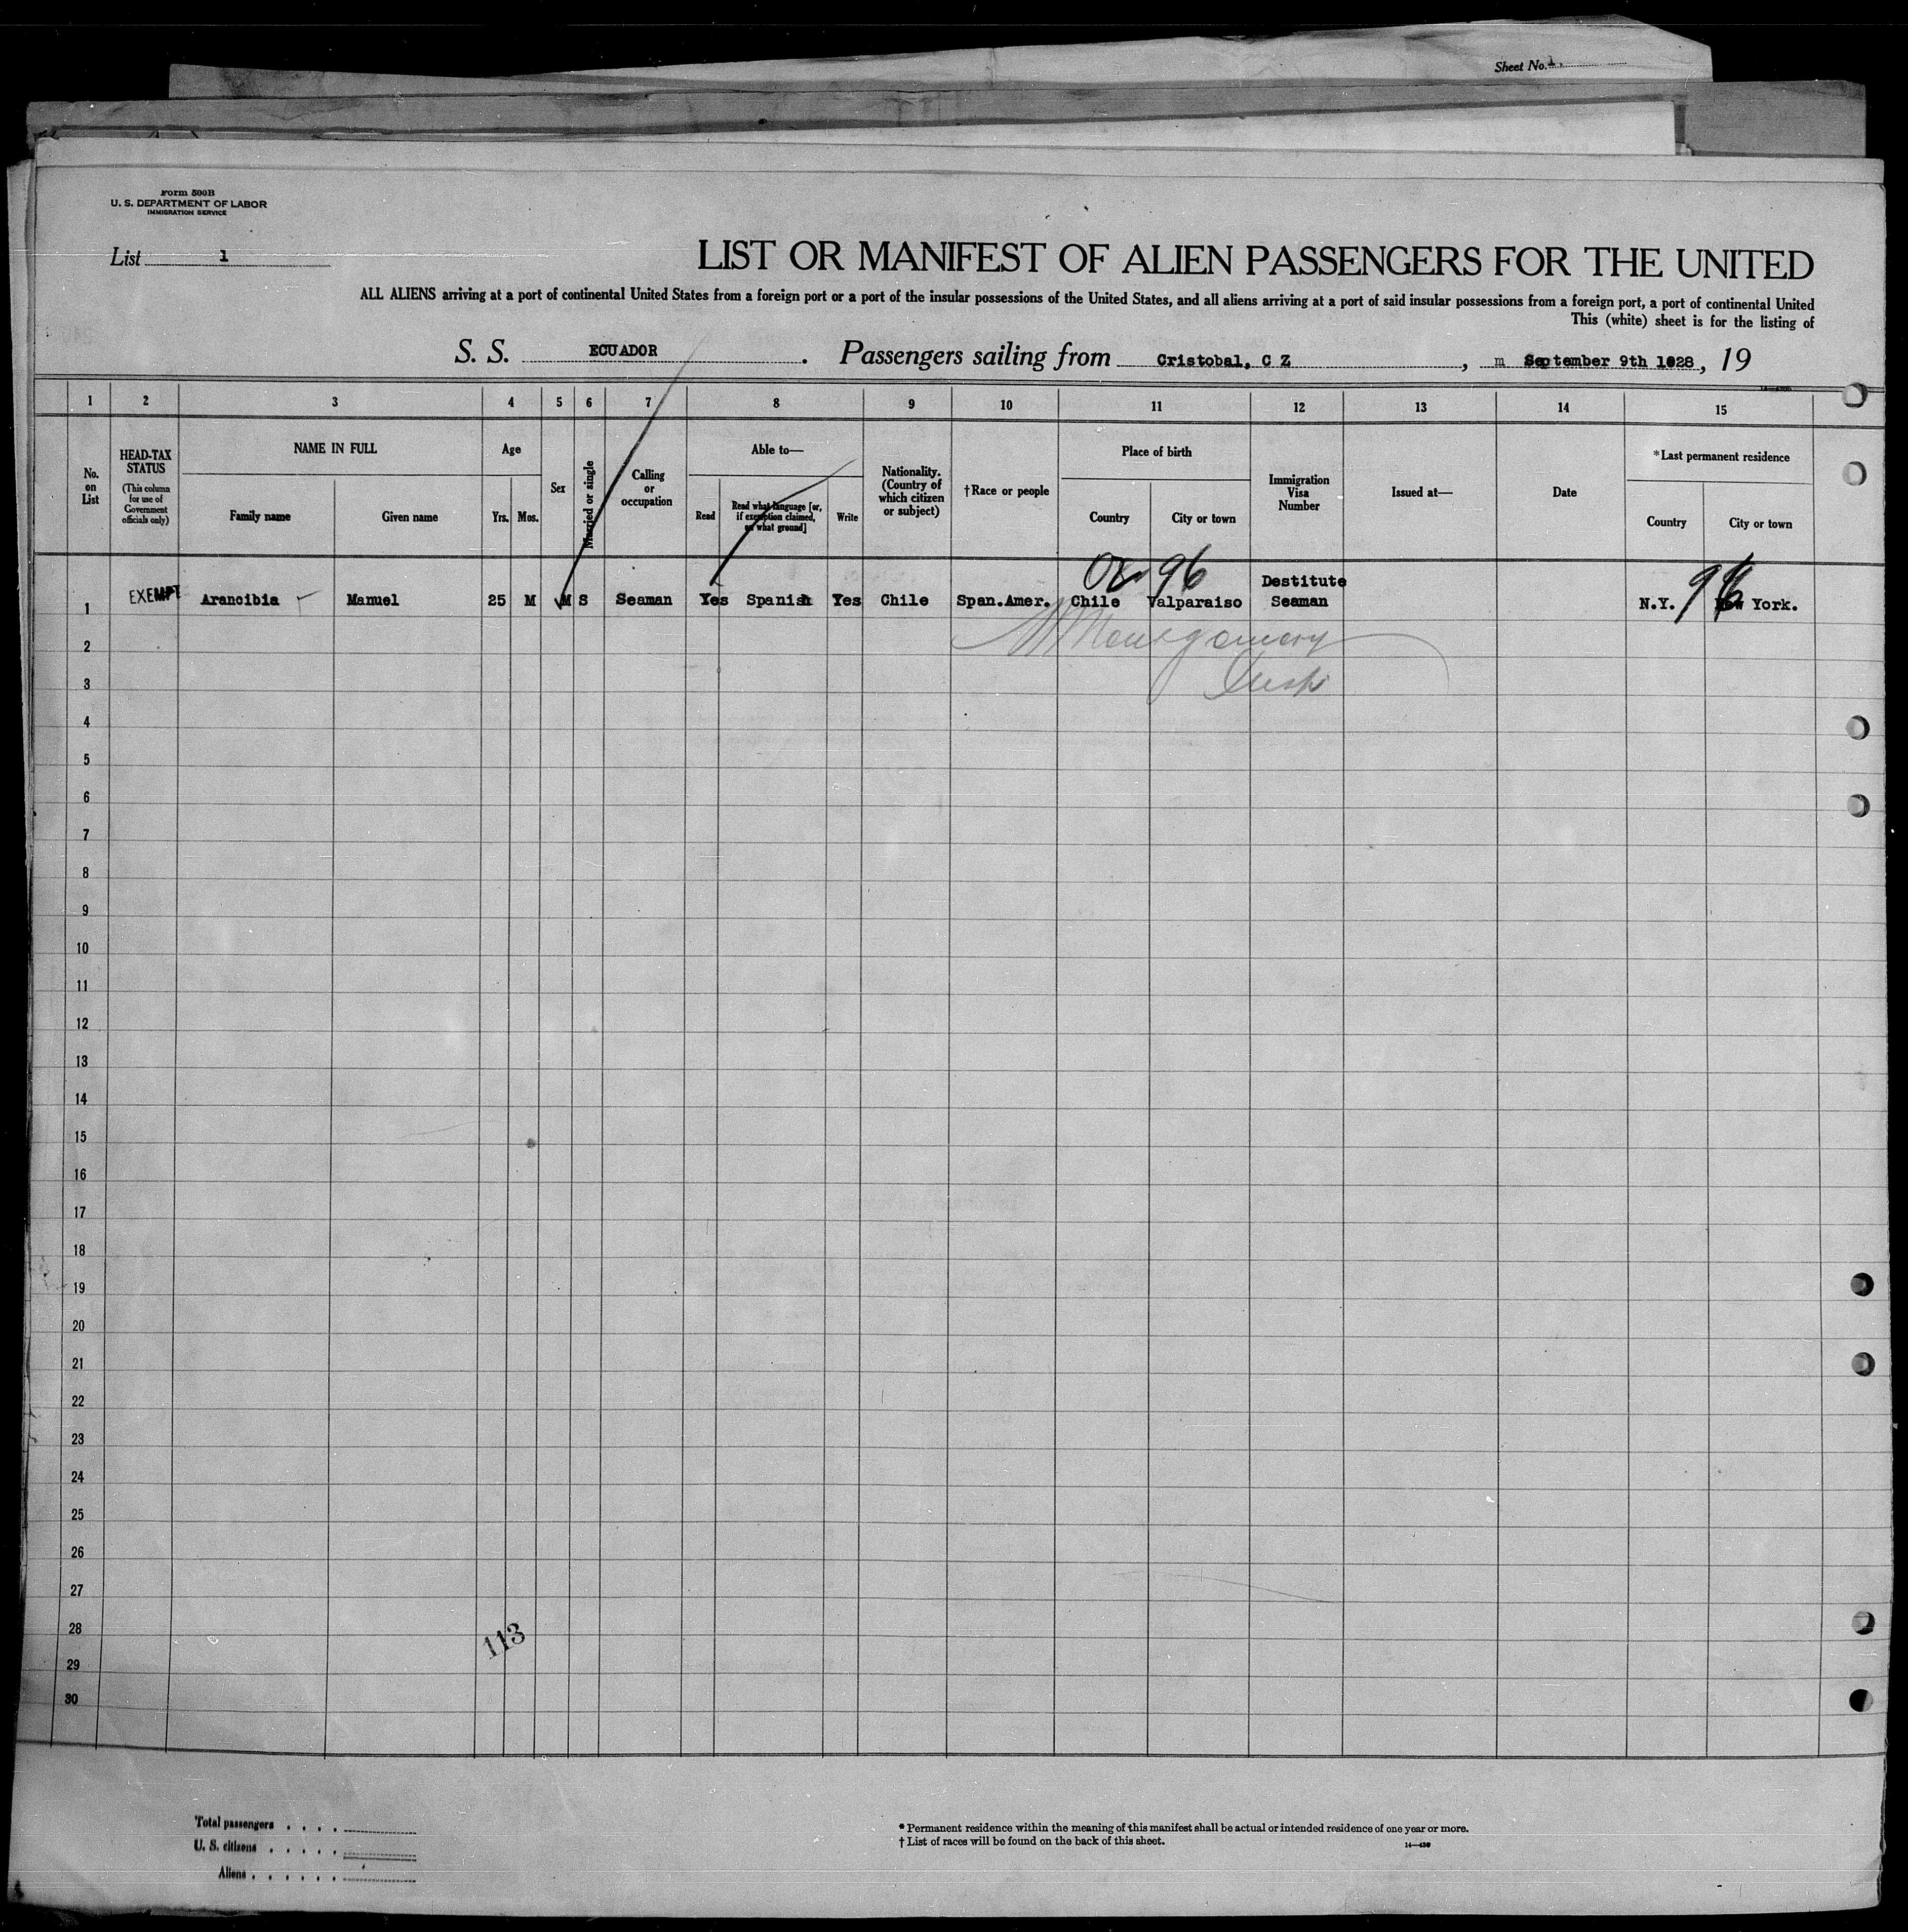 Sheet No. 1.
Form 500B
U. S. DEPARTMENT OF LABOR
IMMIGRATION SERVICE
List 1
LIST OR MANIFEST OF ALIEN PASSENGERS FOR THE UNITED
ALL ALIENS arriving at a port of continental United States from a foreign port or a port of the insular possessions of the United States, and all aliens arriving at a port of said insular possessions from a foreign port, a port of continental United
This (white) sheet is for the listing of
S. S. ECUADOR. Passengers sailing from Cristobal, C Z, September 9th 1928, 19
1 2 3 4 5 6 7 8 9 10 11 12 13 14 15
No. on List
HEAD-TAX STATUS
(This column for use of Government officials only)
NAME IN FULL
Family name
Given name
Age
Yrs.
Mos.
Sex
Married or single
Calling or occupation
Able to—
Read
Read what language [or, if exemption claimed, on what ground]
Write
Nationality. (Country of which citizen or subject)
†Race or people
Place of birth
Country
City or town
Immigration Visa Number
Issued at—
Date
*Last permanent residence
Country
City or town
96
96
1 EXEMPT Arancibia Manuel 25 M M S Seaman Yes Spanish Yes Chile Span.Amer. Chile Valparaiso Destitute Seaman N.Y. New York.
Montgomery
Insp
2
3
4
5
6
7
8
9
10
11
12
13
14
15
16
17
18
19
20
21
22
23
24
25
26
27
28
113
29
30
Total passengers . . . .
U. S. citizens . . . . .
Aliens . . . . . .
* Permanent residence within the meaning of this manifest shall be actual or intended residence of one year or more.
† List of races will be found on the back of this sheet.
14—430